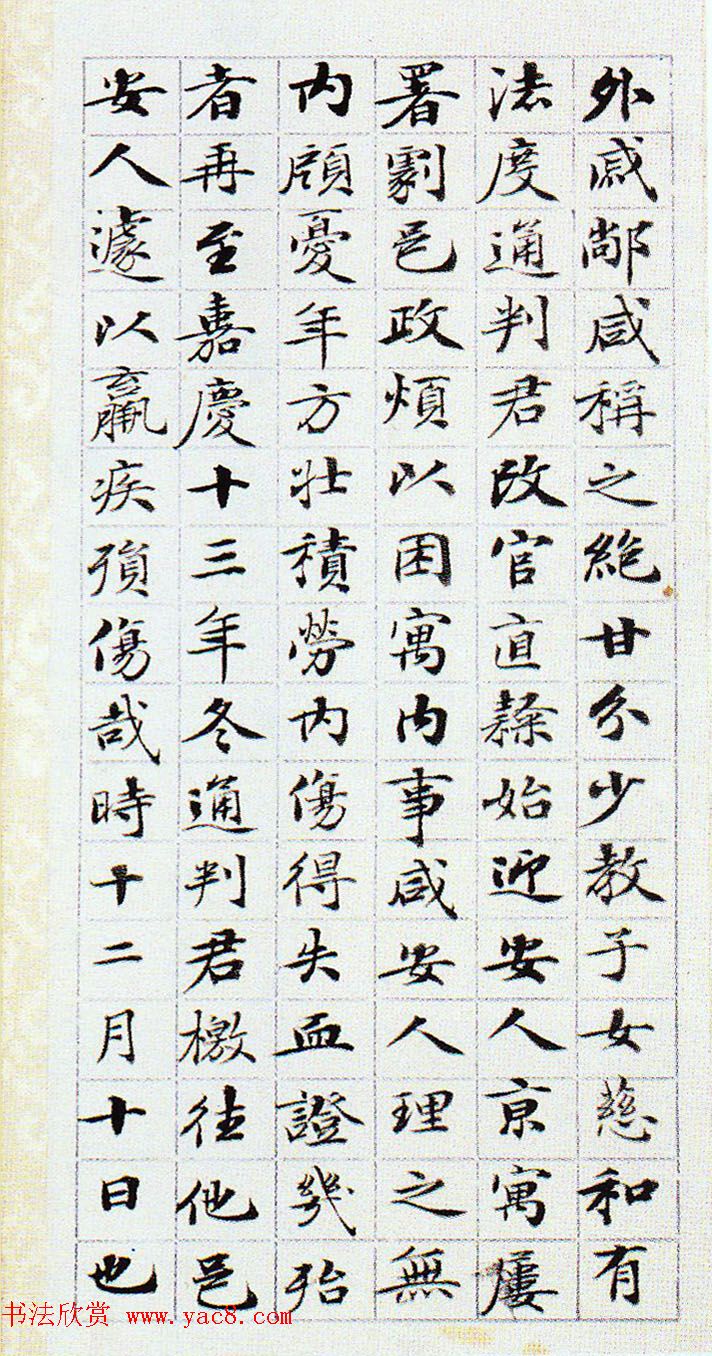 外戚鄰咸稱之絶甘分少教子女慈和有
法度通判君改官直隸始迎安人京寓屢
署劇邑政煩以困寓內事咸安人理之無
內顧憂年方壯積勞內傷得失血證幾殆
者再至嘉慶十三年冬通判君檄往他邑
安人遽以羸疾殞傷哉時十二月十日也
书法欣赏 www.yac8.com